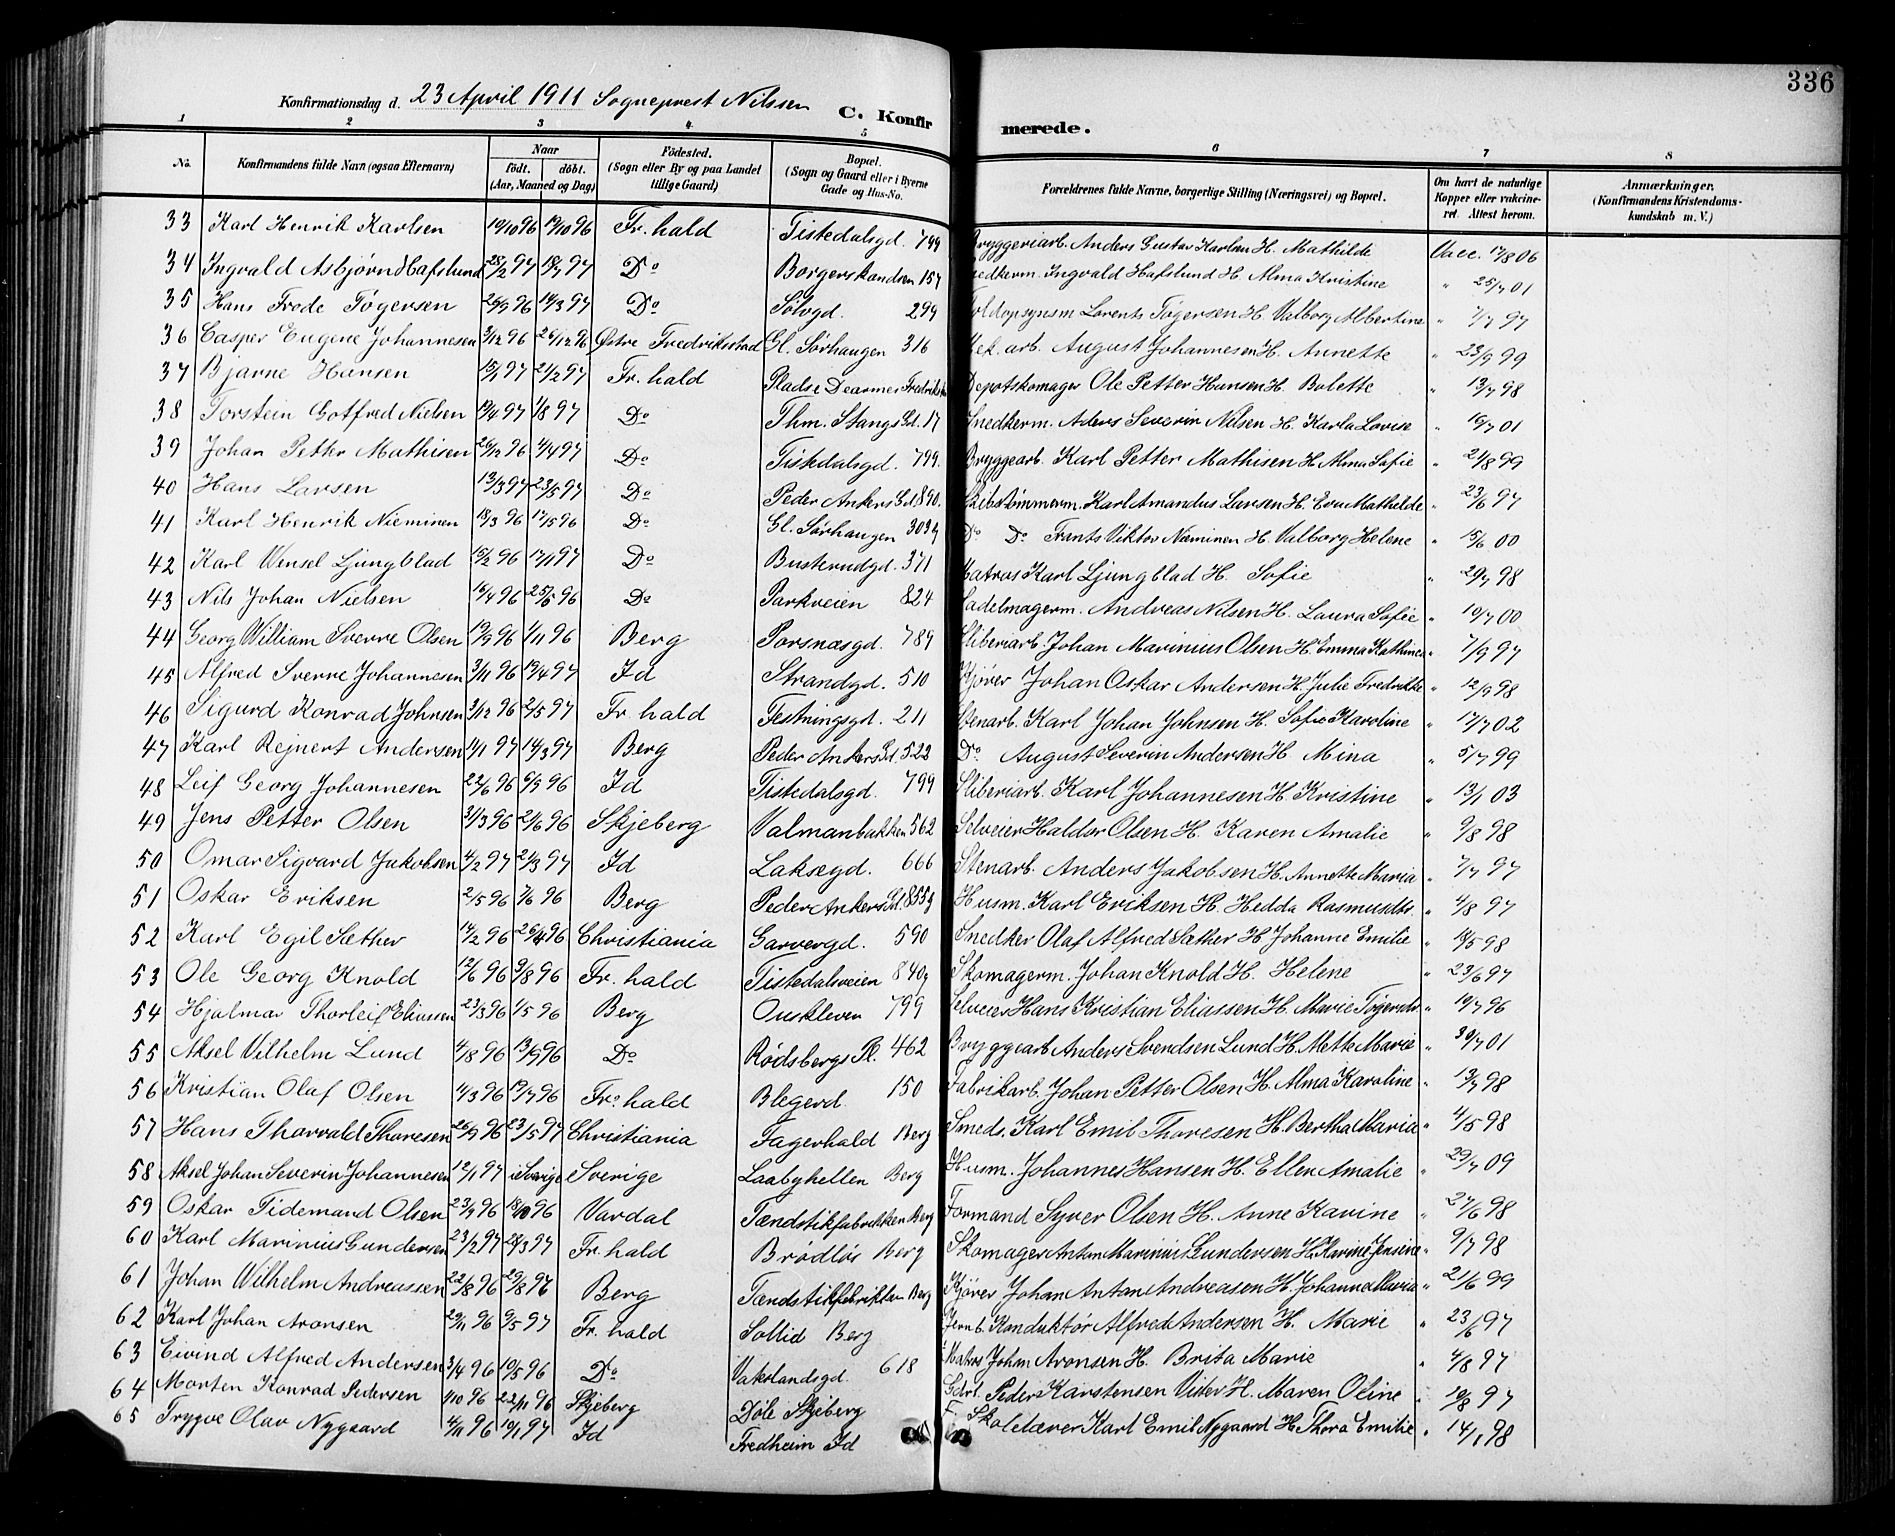 336
Konfirmationsdag d. 23 April 1911 Sogneprest Nilssen C. Konfirmerede.
1 2 3 4 5 6 7 8
No. Konfirmandens fulde Navn (ogsaa Efternavn) Naar födt. döbt. (Aar, Maaned og Dag) Födested. (Sogn eller By og paa Landet tillige Gaard) Bopæl. (Sogn og Gaard eller i Byerne Gade og Hus-No. Forældrenes fulde Navne, borgerlige Stilling (Næringsvei) og Bopæl. Om havt de naturlige Kopper eller vakcineret. Attest herom. Anmærkninger. (Konfirmandens Kristendomskundskab m. V.)
33 Karl Henrik Karlsen 19/10 96 19/10 96 Fr. hald Tistedalsgd. 799 Bryggeriarb. Anders Gustav Karlsen H. Mathilde Vacc. 17/8 06
34 Ingvald Asbjørn Hafslund 97 97 Do Borgerskansen 157 Snedkerm. Ingvald Hafslund H. Alma Kristine " 25/7 01
35 Hans Frode Tøgersen 26/9 96 14/3 97 Do Sølvgd. 299 Toldopsynsm Lorents Tøgersen H. Valborg Albertine " 7/7 97
36 Casper Eugene Johannesen 3/12 96 26/12 96 Østre Fredrikstad Gl. Sørhaugen 316 Mek. arb. August Johannesen H. Annette " 23/9 99
37 Bjarne Hansen 97 21/2 97 Fr. hald Pladse Depotskomager Ole Petter Hansen H. Bolette " 13/7 98
38 Torstein Gotfred Nielsen 19/4 97 1/8 97 Do Thm. Stangs Gd. 17 Snedkerm. Aders Severin Nilsen H. Karla Lovise " 19/7 01
39 Johan Petter Mathisen 26/12 96 4/4 97 Do Tistedalsgd. 799. Bryggearb. Karl Petter Mathisen H. Alma Sofie " 21/8 99
40 Hans Larsen 13/3 97 23/5 97 Do Peder Ankers Gd. 890. Skibstømmerm. Karl Amandus Larsen H. Eva Mathilde " 23/6 97
41 Karl Henrik Nieminen 18/3 96 17/5 96 Do Gl. Sørhaugen 303 Do Do Frants Viktor Næminen H. Valborg Helene " 15/6 00
42 Karl Wensel Ljungblad 15/2 96 17/1 97 Do Busterudgd. 371 Matros Karl Ljungblad H. Sofie " 29/7 98
43 Nils Johan Nielsen 14/4 96 25/5 96 Do Parkveien 824 Sadelmagerm. Andreas Nilsen H. Laura Sofie " 19/7 00
44 Georg William Sverre Olsen 19/9 96 1/11 96 Berg Porsnæsgd. 789 Sliberiarb. Johan Marinius Olsen H. Emma Kathinca " 7/9 97
45 Alfred Sverre Johannesen 3/11 96 19/4 97 Id Strandgd. 510 Kjører Johan Oskar Andersen H. Julie Fredrikke " 12/9 98
46 Sigurd Konrad Johnsen 3/12 96 2/5 97 Fr. hald Festningsgd. 211 Stenarb. Karl Johan Johnsen H. Sofie Karoline " 17/7 02
47 Karl Rejnert Andersen 11/1 97 14/3 97 Berg Peder Ankers Gd. 523 Do August Severin Andersen H. Mina " 5/7 99
48 Leif Georg Johannesen 22/6 96 6/9 96 Id Tistedalsgd. 799 Sliberiarb. Karl Johannesen H. Kristine " 13/1 03
49 Jens Petter Olsen 31/3 96 21/6 96 Skjeberg Valmanbakken 562 Selveier Haldor Olsen H. Karen Amalie " 9/8 98
50 Omar Sigvard Jakobsen 4/2 97 21/3 97 Id Laksegd. 666 Stenarb. Anders Jakobsen H. Annette Maria " 7/7 97
51 Oskar Eriksen 2/5 96 7/6 96 Berg Peder Ankers Gd. 855 Husm. Karl Eriksen H. Hedda Rasmusdtr. " 4/8 97
52 Karl Egil Sæther 14/2 96 26/4 96 Christiania Garvergd. 590 Snedker Olaf Alfred Sæther H Johanne Emilie " 18/5 98
53 Ole Georg Knold 12/6 96 9/8 96 Fr. hald Tistedalsveien 840 Skomagerm. Johan Knold H. Helene " 23/6 97
54 Hjalmar Thorleif Eliassen 23/3 96 1/5 96 Berg Ouskleven 799 Selveier Hans Kristian Eliassen H. Marie Tøgersdtr. " 19/7 96
55 Aksel Vilhelm Lund 4/8 96 13/9 96 Do Rødsbergs Pl. 462 Bryggearb Anders Svendsen Lund H. Mette Marie " 30/7 01
56 Kristian Olaf Olsen 4/3 96 19/7 96 Fr. hald Blegerd. 150 Fabrikarb. Johan Petter Olsen H. Alma Karoline " 13/7 98
57 Hans Thorvald Thoresen 26/9 96 23/5 97 Christiania Fagerhald Berg Smeds. Karl Emil Thoresen H. Bertha Maria " 4/5 98
58 Aksel Johan Severin Johannesen 12/1 97 i Sverige Sverige Laabyhellen Berg Husm. Johannes Hansen H. Ellen Amalie " 29/7 09
59 Oskar Tidemand Olsen 23/9 96 18/10 96 Vardal Tændstikfabrikken Berg Formand Syver Olsen H. Anne Karine " 27/6 98
60 Karl Marinius Gundersen 23/2 97 28/3 97 Fr. hald Brødløs Berg Skomager Anton Marinius Gundersen H. Karine Jensine " 9/7 98
61 Johan Wilhelm Andreassen 22/8 96 29/8 96 Berg Tændstikfabrikken Berg Kjører Johan Anton Andreasen H. Johanne Maria " 21/6 99
62 Karl Johan Aronsen 29/11 96 9/5 97 Fr. hald Sollid Berg Jernb. Konduktør Alfred Andersen H. Marie " 23/6 97
63 Eivind Alfred Andersen 3/4 96 10/5 96 Do Vaterlandsgd. 618 Matros Johan Aronsen H. Brita Marie " 4/8 97
64 Morten Konrad Pedersen 1/10 96 22/11 96 Skjeberg Døle Skjeberg Gdrl. Peder Karstensen Vister H. Maren Oline " 19/8 97
65 Trygve Olav Nygaard 4/11 96 10/1 97 Id Fredheim Id F. Skolelærer Karl Emil Nygaard H. Thora Emilie " 14/1 98